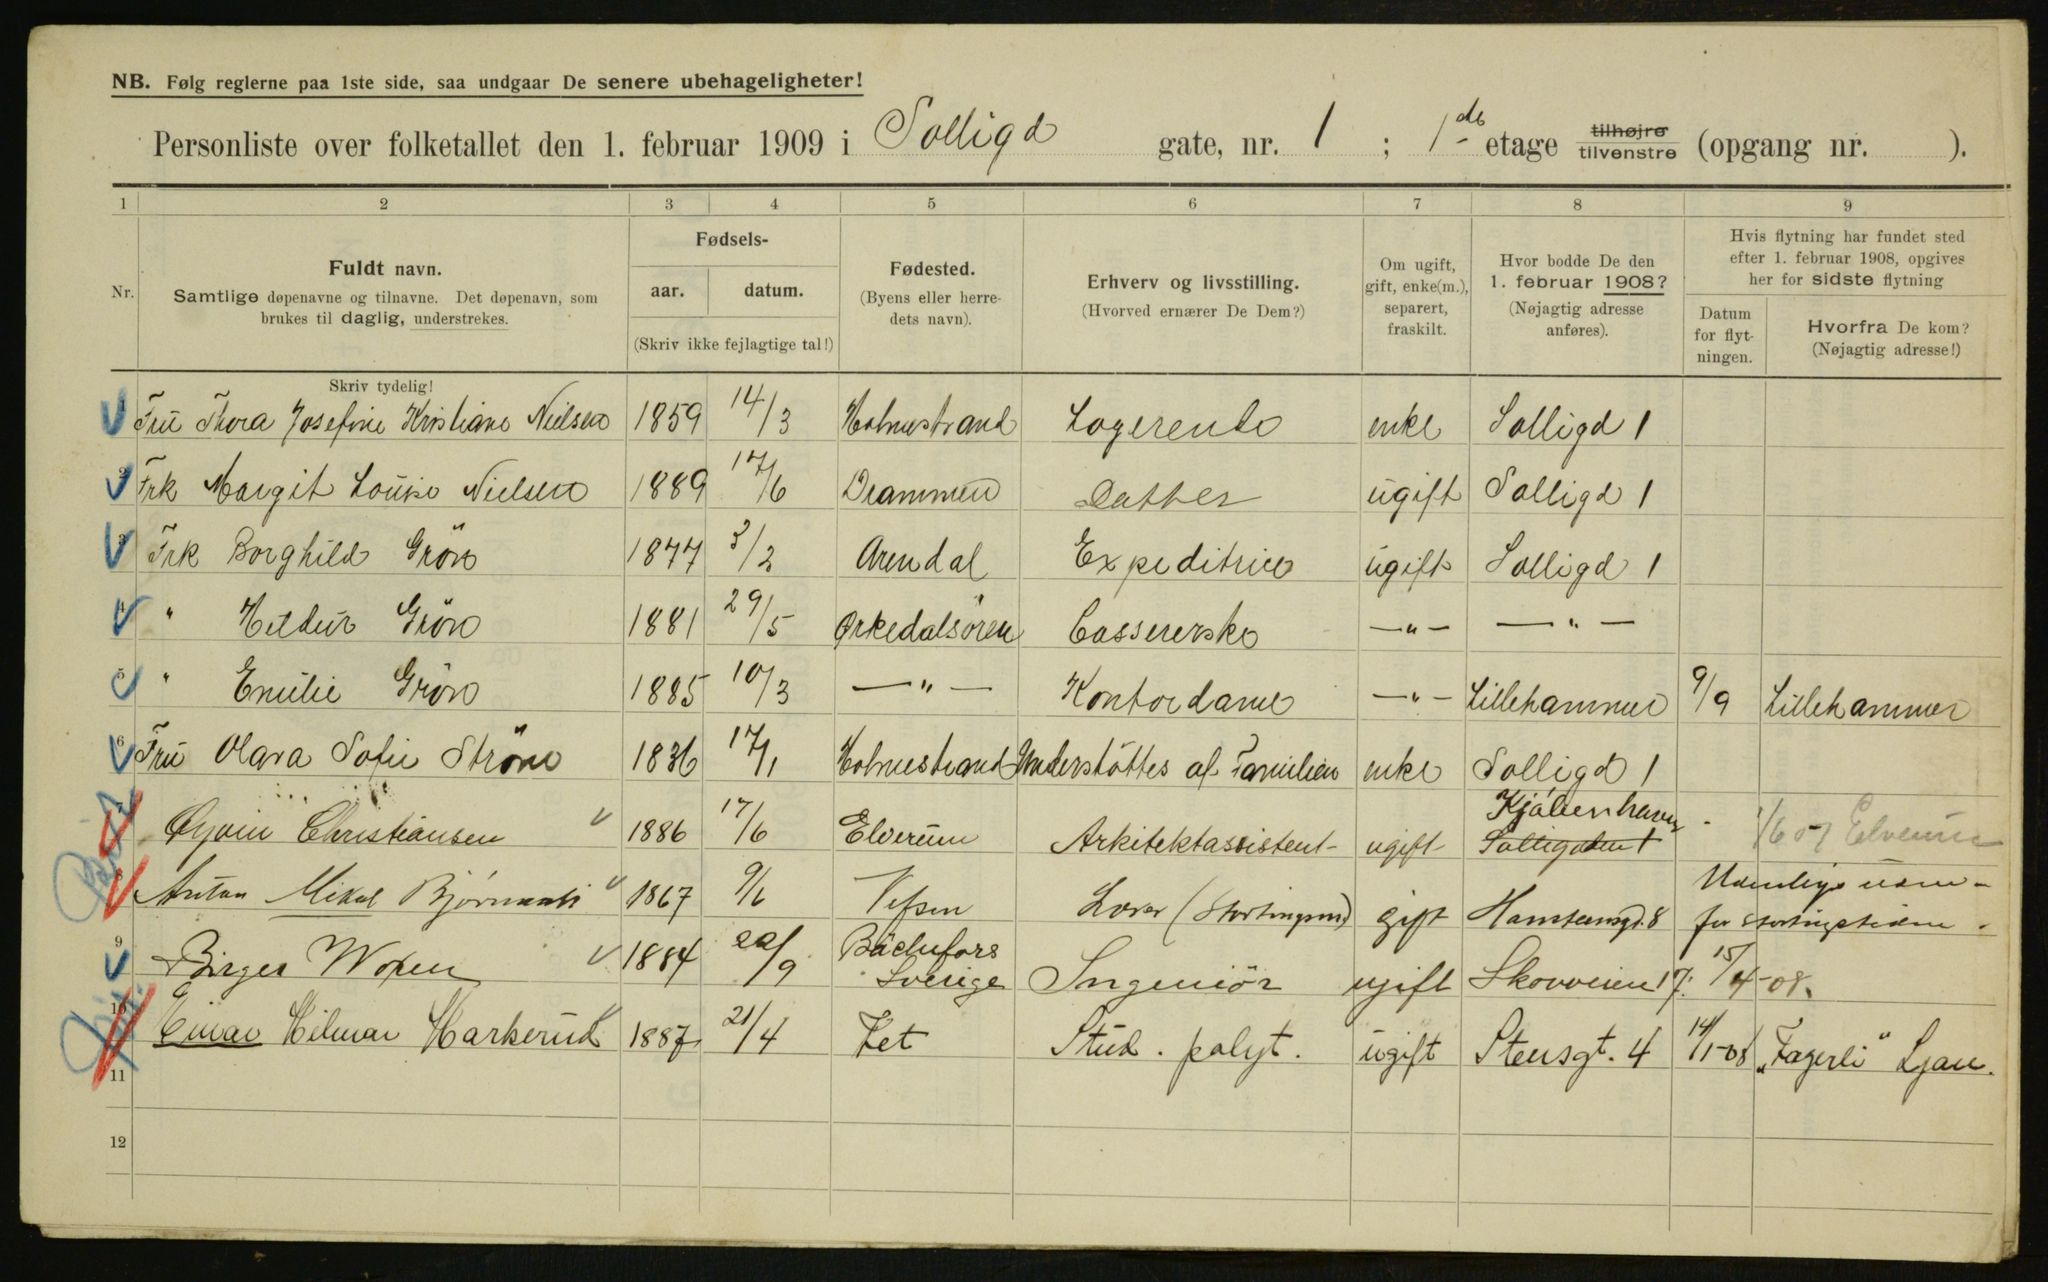 NB. Følg reglerne paa 1ste side, saa undgaar De senere ubehageligheter!
Personliste over folketallet den 1. februar 1909 i Solligd gate, nr. 1 ; 1ste etage tilhøjre tilvenstre (opgang nr. ).
1 2 3 4 5 6 7 8 9
Nr.
Fuldt navn.
Samtlige døpenavne og tilnavne. Det døpenavn, som
brukes til daglig, understrekes.
Skriv tydelig!
Fødsels-
aar. datum.
(Skriv ikke fejlagtige tal!)
Fødested.
(Byens eller herre-
dets navn).
Erhverv og livsstilling.
(Hvorved ernærer De Dem?)
Om ugift,
gift, enke(m.),
separert,
fraskilt.
Hvor bodde De den
1. februar 1908?
(Nøjagtig adresse
anføres).
Hvis flytning har fundet sted
efter 1. februar 1908, opgives
her for sidste flytning
Datum
for flyt-
ningen.
Hvorfra De kom?
(Nøjagtig adresse!)
1 Fru Thora Josefine Kristiane Nielsen 1859 14/3 Holmestrand Logerende enke Solligd 1
2 Frk Margit Louise Nielsen 1889 17/6 Drammen Datter ugift Solligd 1
3 Frk Borghild Grön 1877 3/2 Arendal Expeditrice ugift Solligd 1
4 " Heldur Grön 1881 29/5 Orkedalsören Cassererske —"— —"—
5 " Emilie Grön 1885 10/3 —"— Kontordame —"— Lillehammer 9/9 Lillehammer
6 Fru Olava Sofie Ström 1836 17/1 Holmestrand Understöttes af Familien enke Solligd 1
7 Christiansen 1886 17/6 Elverum Arkitektassistent ugift Kjöbenhavn Solligaden 1 1/6 07 Elverum
8 Anton Mikal 1867 9/6 Vefsen (Stortingsmd) gift 8 for stortingstiden.
9 Birger Woxen 1884 22/9 Bäckefors Sverige Ingeniör ugift Skovveien 17. 15/4-08.
10 Einar Hilmar Harkerud 1887 21/4 Fet Stud. polyt. ugift Stensgt. 4 14/1-08 "Fagerli" Ljan.
11
12